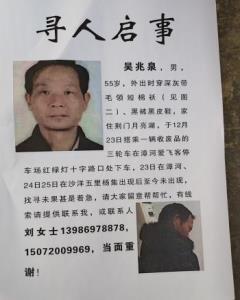 寻人启事
吴兆泉，男，
55岁，外出时穿深灰带
毛领短棉袄（见图
二），黑裤黑皮鞋，家
住荆门月亮湖，于12月
23日搭乘一辆收废品的
三轮车在漳河爱飞客停
车场红绿灯十字路口处下车，23日在漳河、
24日25日在沙洋五里杨集出现后至今未出现，
找寻未果甚是着急，请大家留意帮帮忙，有线
索请提供联系我，或联系人
刘女士13986978878，
15072009969，当面重
谢！